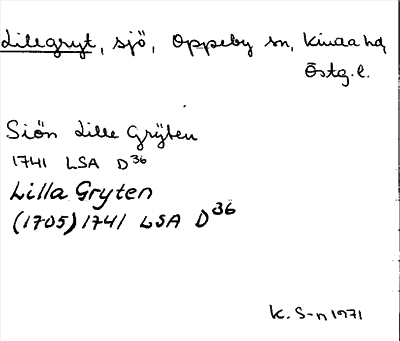 Lillegryt, sjö, Oppeby sn, Kinda hd,
Östg. l.
Siön Lille Grÿten
1741 LSA D36
Lilla Gryten
(1705) 1741 LSA D36
K. S-n 1971